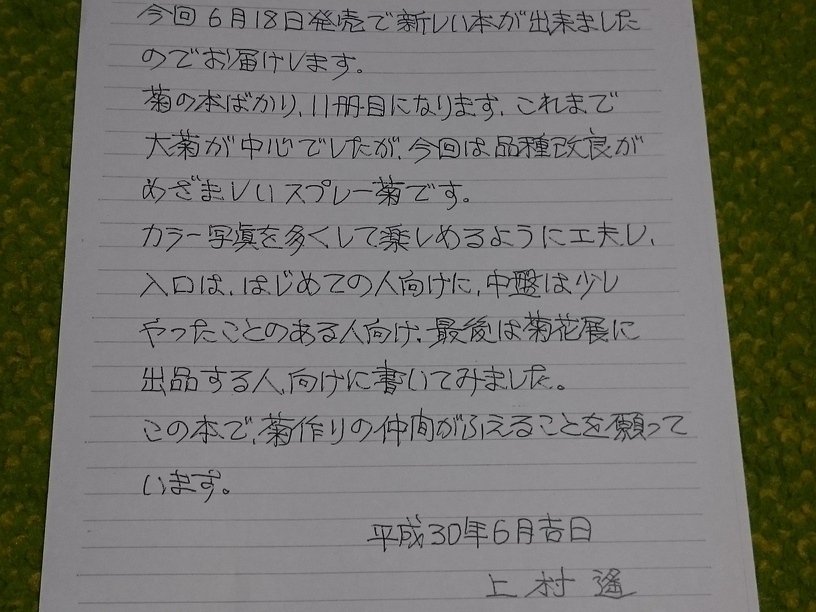 今回6月18日発売で新しい本が出来ました
のでお届けします。
菊の本ばかり、11冊目になります。これまで
大菊が中心でしたが、今回は品種改良が
めざましいスプレー菊です。
カラー写真を多くして楽しめるように工夫し、
入口は、はじめての人向けに、中盤は少し
やったことのある人向け、最後は菊花展に
出品する人向けに書いてみました。
この本で、菊作りの仲間がふえることを願って
います。
平成30年6月吉日
上村 遙